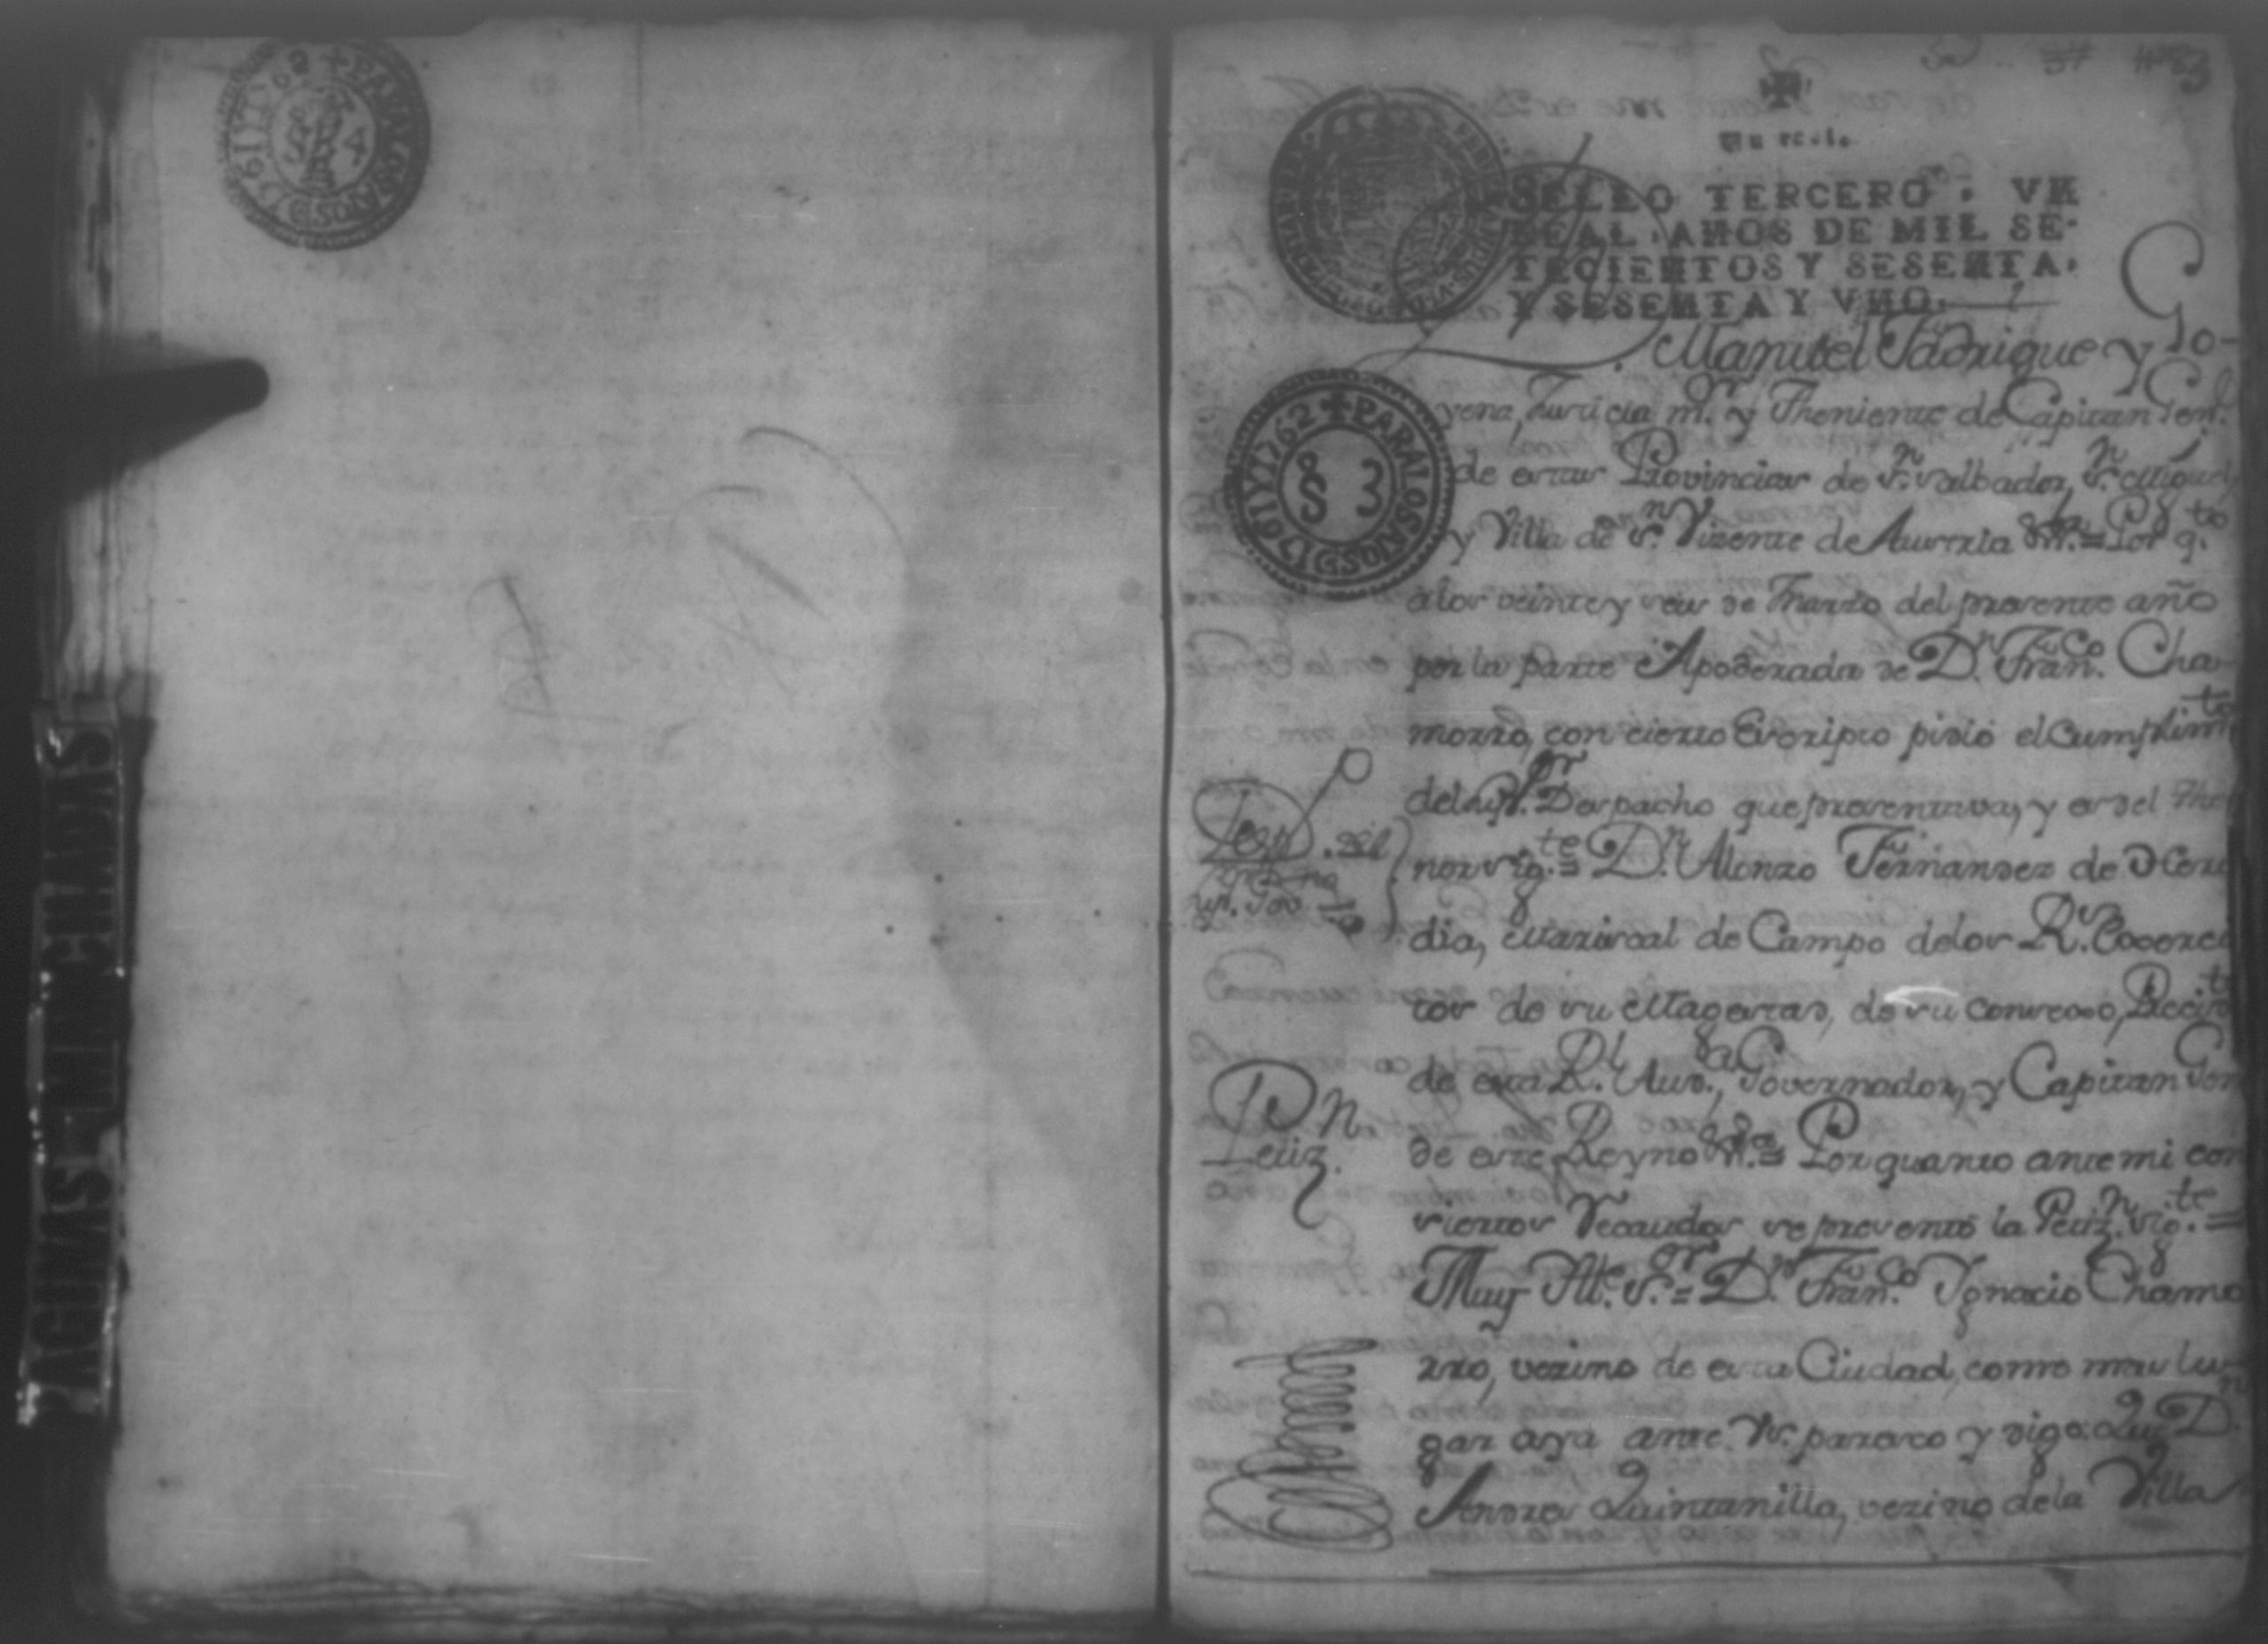 1762 ✠ PARALOSANOSDE1761Y
4
✠
Un real.
SELLO TERCERO, VN
REAL, AÑOS DE MIL SE-
TECIENTOS Y SESENTA,
Y SESENTA Y VNO.
1762 ✠ PARALOSANOSDE1761Y
3
Manuel Fadrique y Go-
yena, Justicia mr. y Theniente de Capitan Genl.
de estas Provincias de Sn. Salbador, Sn. Miguel
y Villa de Sn. Vizente de Austria &a. = Por qto.
a los veinte y seis de Marzo del presente año
por la parte Apoderada de Dn. Franco. Cha-
morro, con cierto Escripto pidió el Cumplimto.
del Supor. Despacho que presentava, y es del the-
nor sigte. = Dn. Alonzo Fernandez de Here
dia, Mariscal de Campo de los Rs. Exserci
tos de su Magestad, de su consexo, Precidte.
de esta Rl. Auda., Governador, y Capitan Gen
de este Reyno &a. = Por quanto ante mi con
siertos Recaudos se presentó la Petizn. sigte. =
Petizn.
Muy Ille. Sor. = Dn. Franco. Ignacio Chamo
rro, vezino de esta Ciudad, como mas lu-
gar aya ante Vs. paresco y digo: Que Dn.
Andres Quintanilla, vezino de la Villa